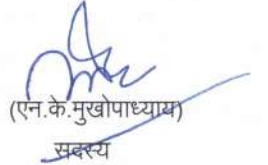 (एन.के.मुखोपाध्याय)
सदस्य